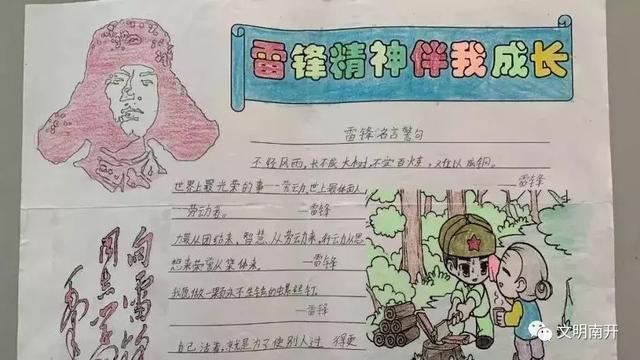 雷锋精神伴我成长
雷锋名言警句
不经风雨,长不成大树,不受百炼,难以成钢。
——雷锋
世界上最光荣的事——劳动,世上最体面人
——劳动者。 ——雷锋
力量从团结来,智慧从劳动来,行动从思
想来荣誉从集体来。 ——雷锋
我愿做一颗永不生锈的螺丝钉
——雷锋
自己活着,就是为了使别人过得更
向雷锋
同志学
文明南开